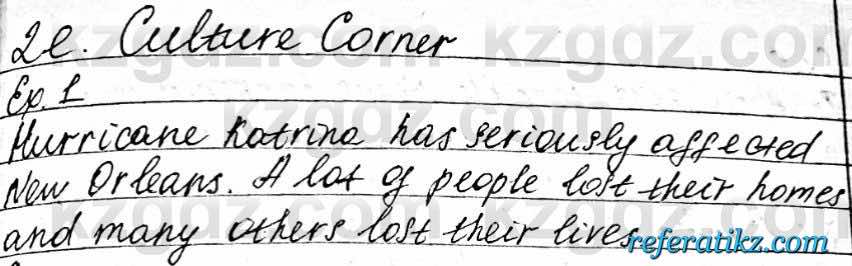 2e. Culture Corner
Ex. 1
Hurricane Katrina has seriously affected
New Orleans. A lot of people lost their homes
and many others lost their lives
referatikz.com
kzgdz.com